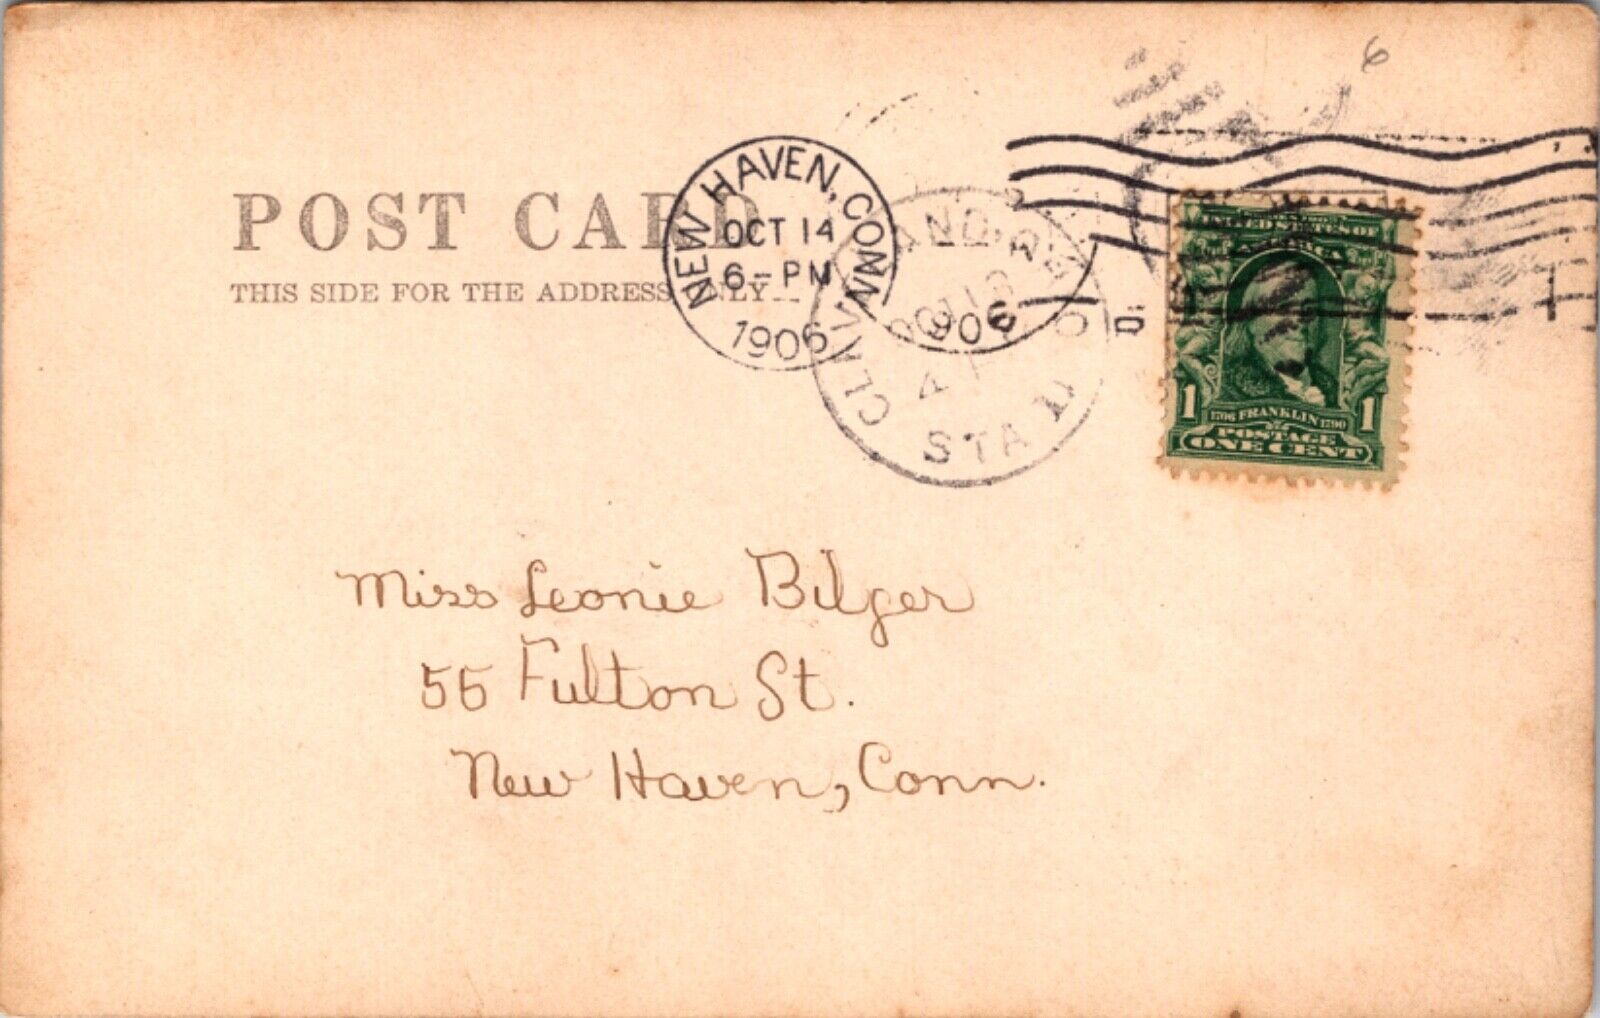 6
POST CARD
THIS SIDE FOR THE ADDRESS ONLY
NEW HAVEN, CONN.
OCT 14
6-PM
1906
OCT 13
906
4
STA D
D.
1
UNITED STATES OF
1 1706 FRANKLIN 1790 1
POSTAGE
ONE CENT
Miss Leonie Bilger
55 Fulton St.
New Haven, Conn.